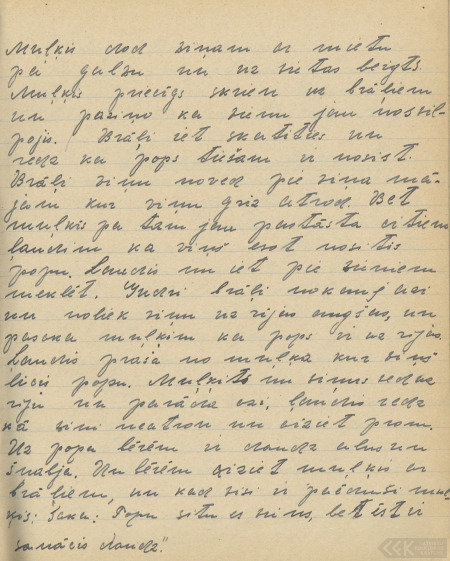 Muļķis dod viņam ar mietu
pa galvu un uz vietas beigts.
Muļķis priecīgs skrien uz brāļiem
un paziņo ka viens jau nosvil-
pojis. Brāļi iet skatīties un
redz ka pops tiešām ir nosist.
Brāļi viņu noved pie viņa mā-
jam kur viņu grib atrod. Bet
muļķis pa tam jau pastāsta citiem
ļaudim ka viņš esot nositis
popu. Ļaudis nu iet pie viņiem
meklēt. Gudri brāļi nokauj āzi
un noliek viņu uz rijas augšas, un
pasaka muļķim ka pops ir uz rijas.
Ļaudis prasa no muļķa kur viņš
licis popu. Muļķītis nu viņus ved uz
riju un parāda āzi, ļaudis redz
kā viņi neatron un aiziet prom.
Uz popa bērēm ir daudz alus un
šnabja. Un bērēm aiziet muļķis ar
brāļiem, un kad visi ir piedzēruši muļ-
ķis: saka: Popu situ es viens, bet ēst ir
sanācis daudz".